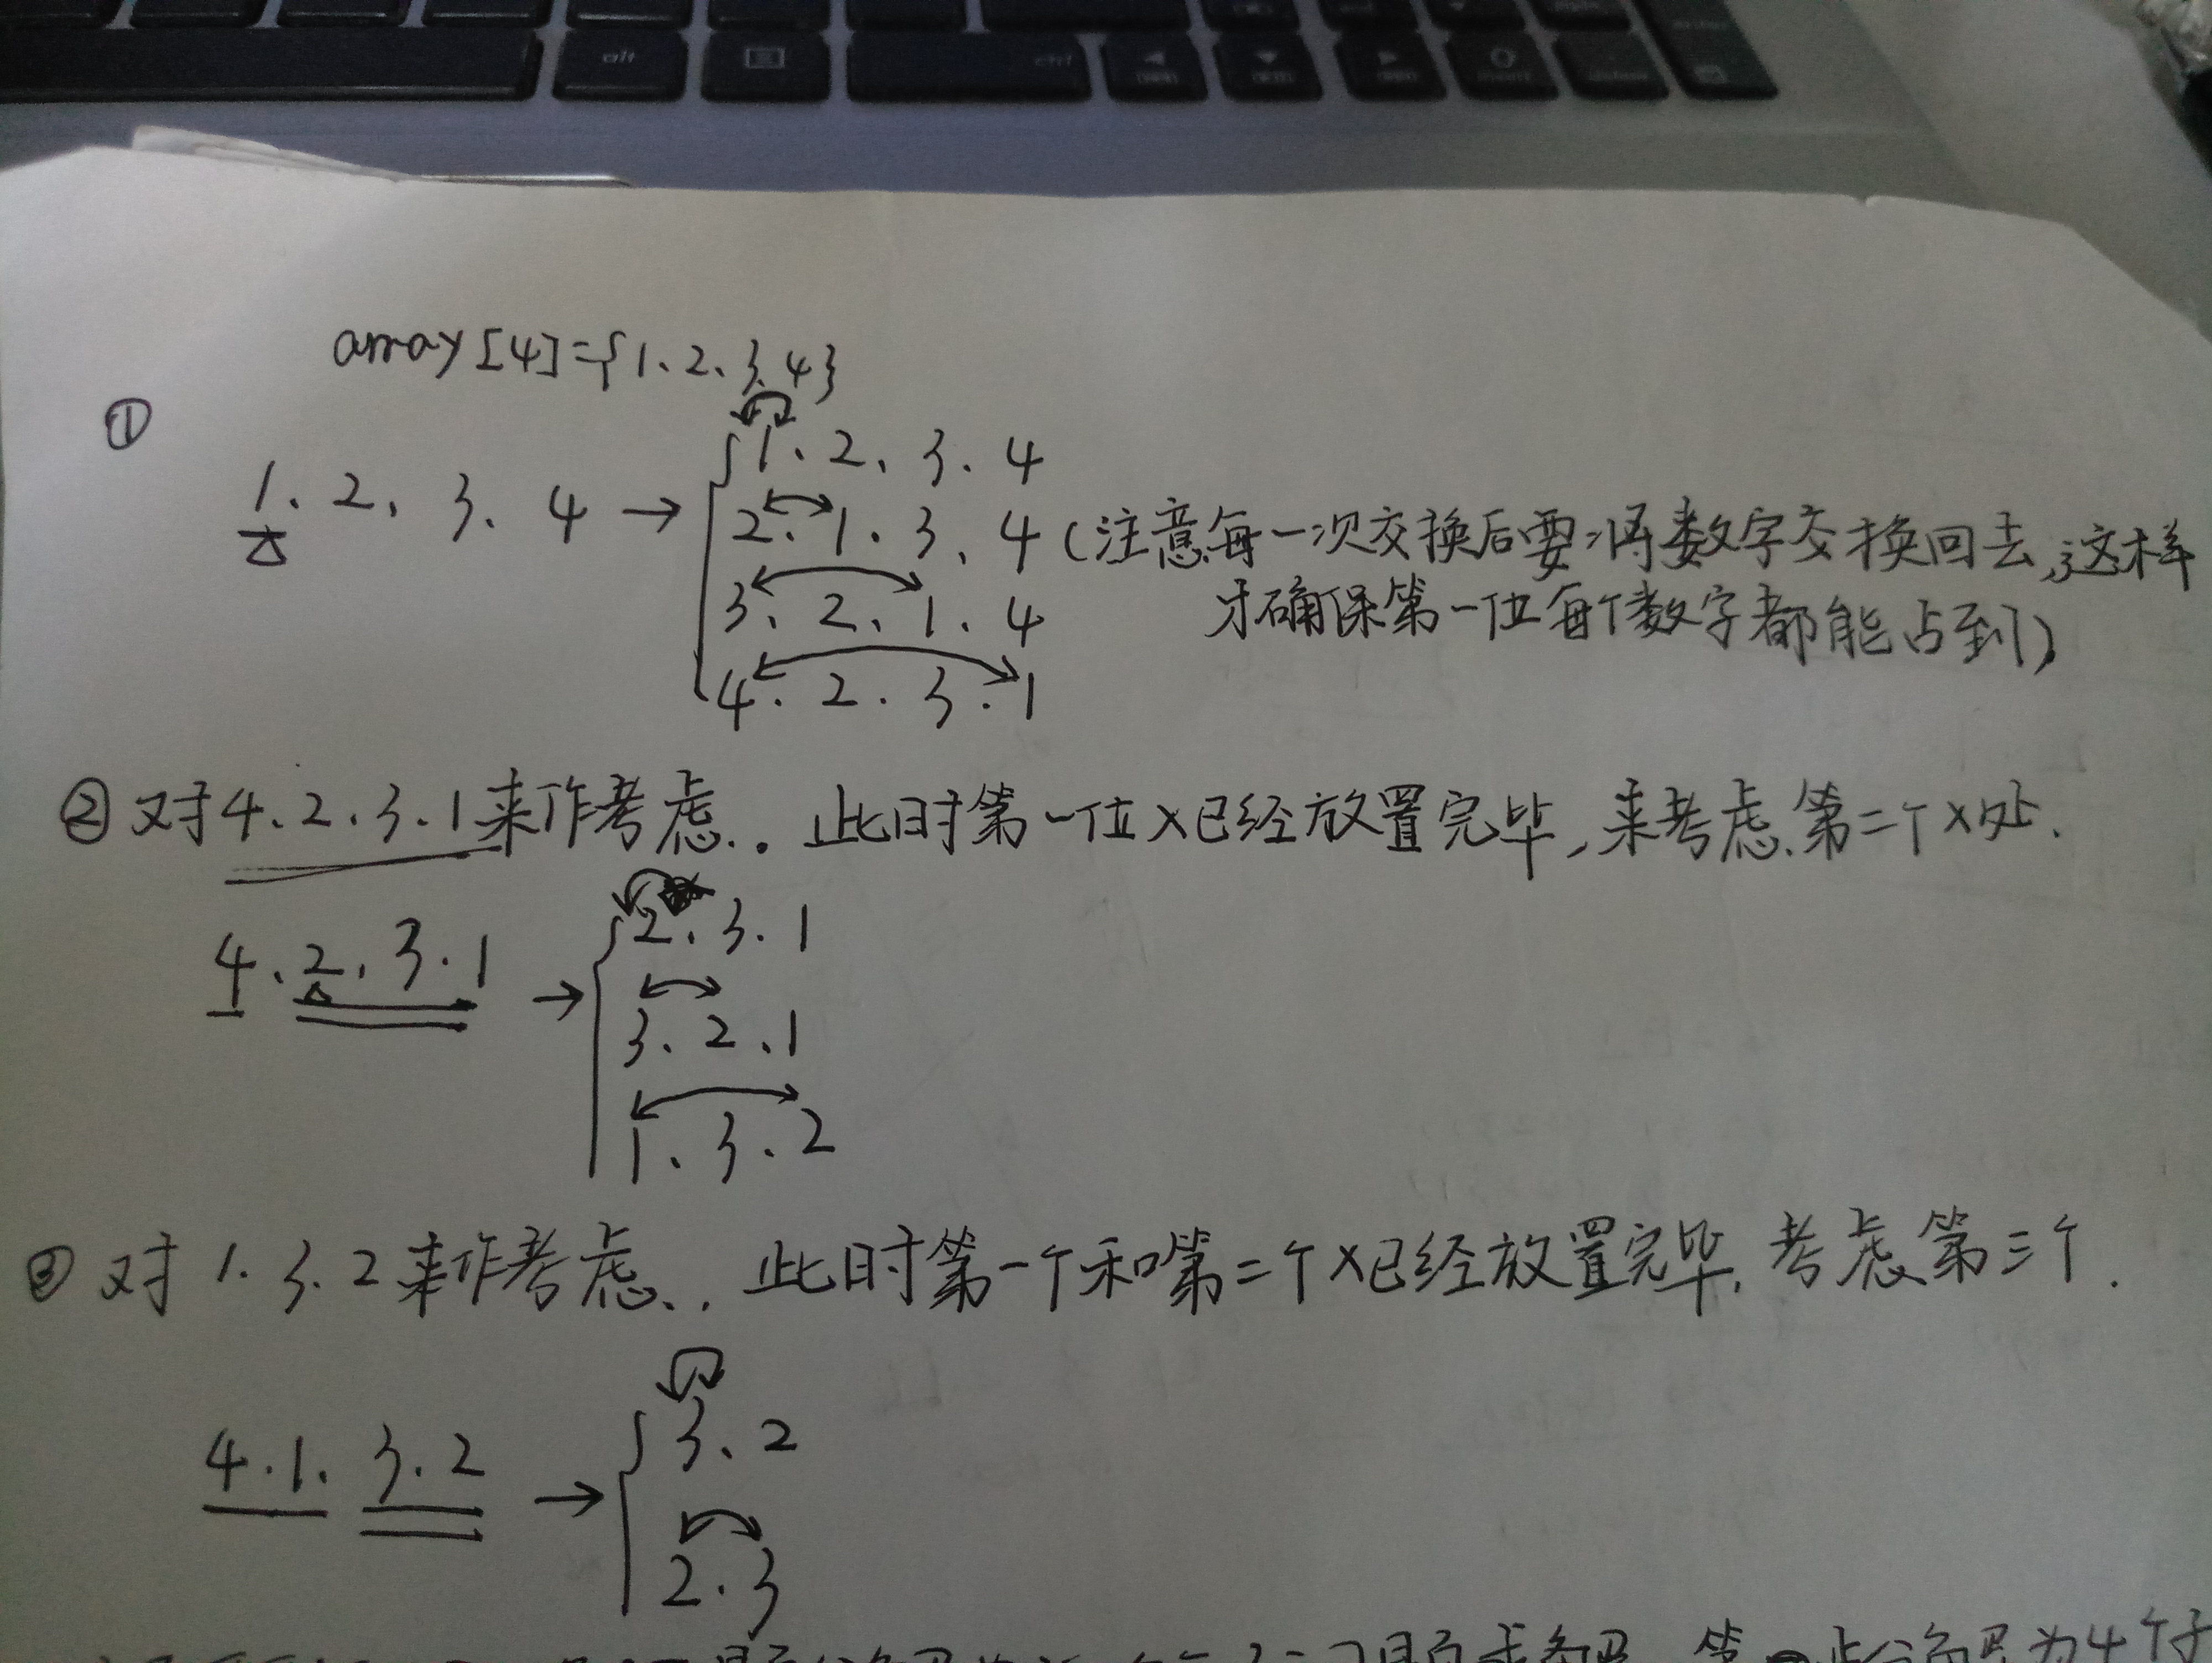 array[4]={1、2、3、4}
①
1、2、3、4 → 1、2、3、4
2、1、3、4 (注意每一次交换后要将数字交换回去,这样
3、2、1、4 才确保第一位每个数字都能占到)
4、2、3、1
② 对4、2、3、1来作考虑.. 此时第一位×已经放置完毕,来考虑第二个×处.
4、2、3、1 → 2、3、1
3、2、1
1、3、2
③ 对 1、3、2来作考虑.. 此时第一个和第二个×已经放置完毕,考虑第三个.
4、1、3、2 → 3、2
2、3